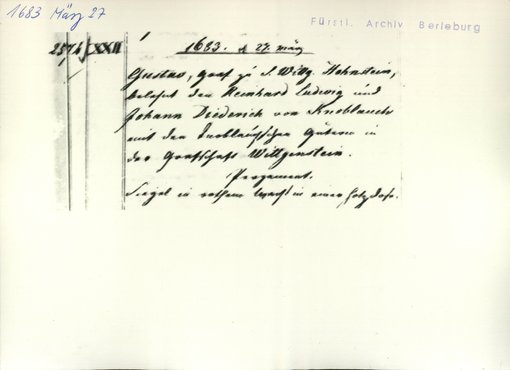 1683 März 27
Fürstl. Archiv Berleburg
1683. d 27. März
Gustav, Graf zu S. Wittg. Hohnstein,
belehnt den Reinhard Ludwig und
Johann Diederich von Knoblauch
mit den Knoblauchschen Gütern in
der Grafschaft Wittgenstein.
Pergament.
Siegel in rothem Wachs in einer Holzdose.